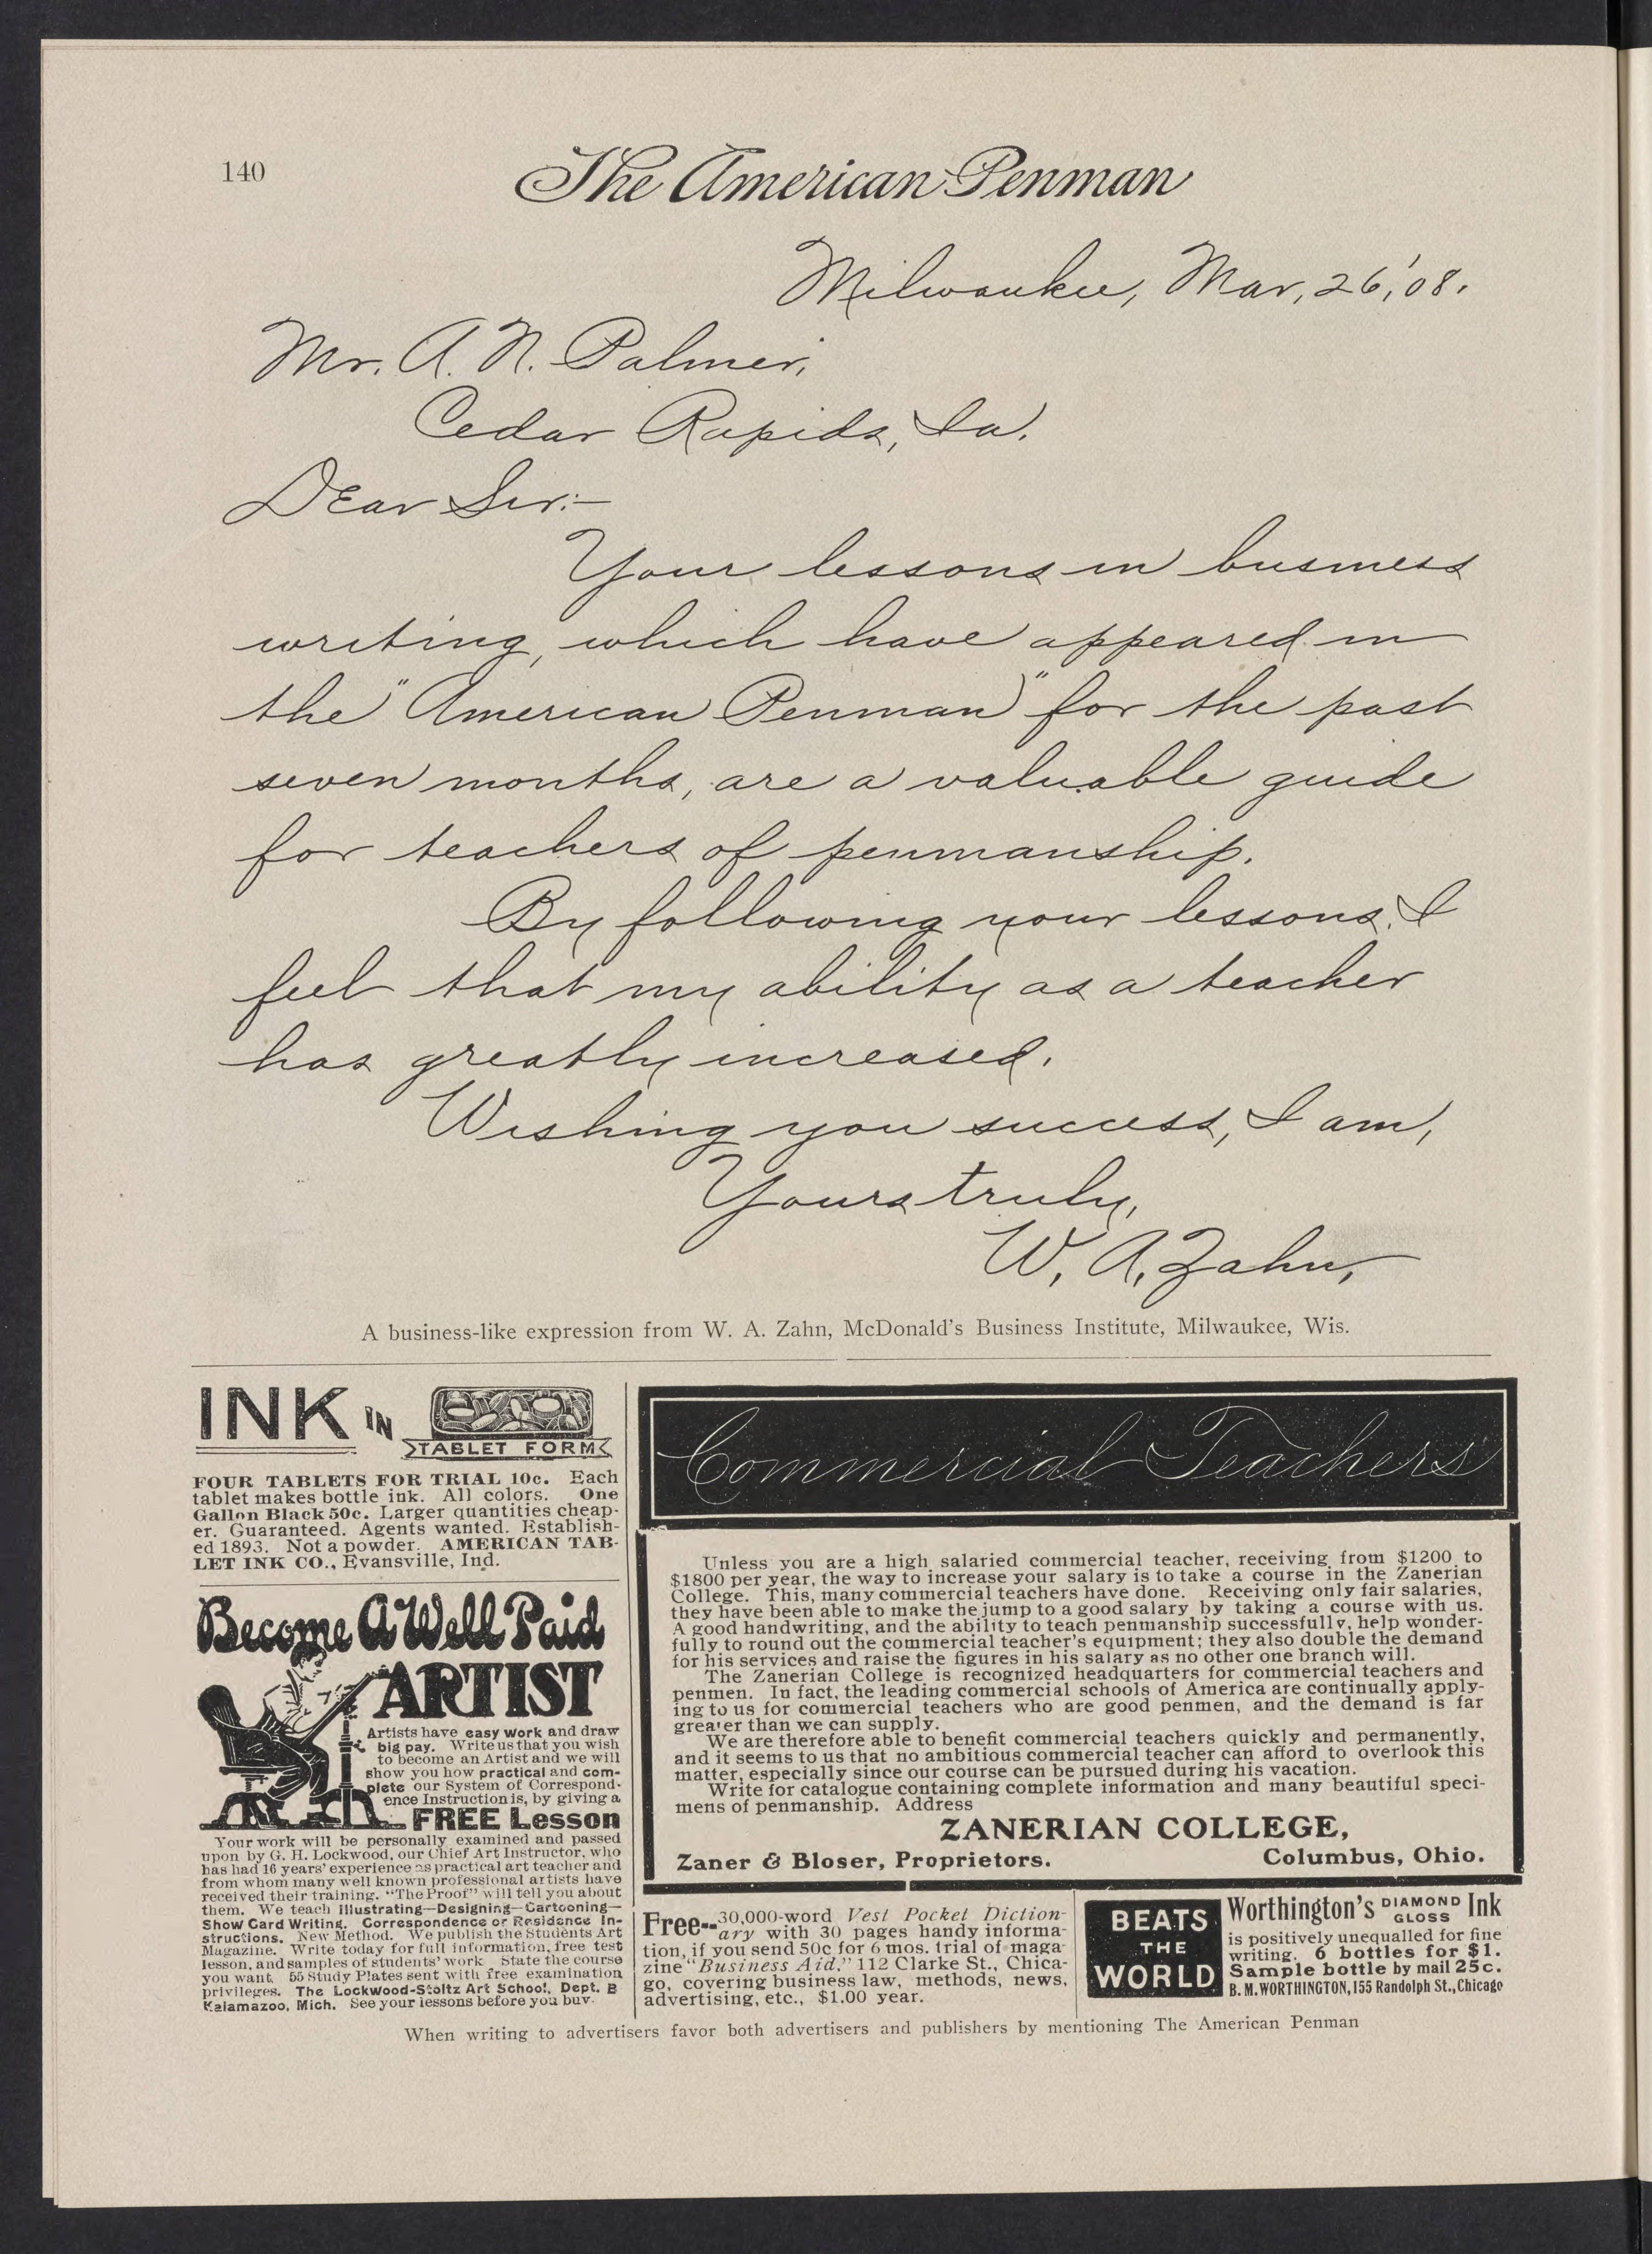 140
The American Penman
Milwaukee, Mar, 26,'08.
Mr. A. N. Palmer,
Cedar Rapids, Ia.
Dear Sir:-
Your lessons in business
writing, which have appeared in
the "American Penman" for the past
seven months, are a valuable guide
for teachers of penmanship.
By following your lessons, I
feel that my ability as a teacher
has greatly increased.
Wishing you success, I am,
Yours truly,
W. A. Zahn,
A business-like expression from W. A. Zahn, McDonald's Business Institute, Milwaukee, Wis.
INK IN
TABLET FORM
FOUR TABLETS FOR TRIAL 10c. Each
tablet makes bottle ink. All colors. One
Gallon Black 50c. Larger quantities cheap-
er. Guaranteed. Agents wanted. Establish-
ed 1893. Not a powder. AMERICAN TAB-
LET INK CO., Evansville, Ind.
Become A Well Paid
ARTIST
Artists have easy work and draw
big pay. Write us that you wish
to become an Artist and we will
show you how practical and com-
plete our System of Correspond-
ence Instruction is, by giving a
FREE Lesson
Your work will be personally examined and passed
upon by G. H. Lockwood, our Chief Art Instructor, who
has had 16 years' experience as practical art teacher and
from whom many well known professional artists have
received their training. "The Proof" will tell you about
them. We teach Illustrating—Designing—Cartooning—
Show Card Writing. Correspondence or Residence In-
structions. New Method. We publish the Students Art
Magazine. Write today for full information, free test
lesson, and samples of students' work State the course
you want. 55 Study Plates sent with free examination
privileges. The Lockwood-Stoltz Art School, Dept. B
Kalamazoo, Mich. See your lessons before you buy.
Commercial Teachers
Unless you are a high salaried commercial teacher, receiving from $1200 to
$1800 per year, the way to increase your salary is to take a course in the Zanerian
College. This, many commercial teachers have done. Receiving only fair salaries,
they have been able to make the jump to a good salary by taking a course with us.
A good handwriting, and the ability to teach penmanship successfully, help wonder-
fully to round out the commercial teacher's equipment; they also double the demand
for his services and raise the figures in his salary as no other one branch will.
The Zanerian College is recognized headquarters for commercial teachers and
penmen. In fact, the leading commercial schools of America are continually apply-
ing to us for commercial teachers who are good penmen, and the demand is far
greater than we can supply.
We are therefore able to benefit commercial teachers quickly and permanently,
and it seems to us that no ambitious commercial teacher can afford to overlook this
matter, especially since our course can be pursued during his vacation.
Write for catalogue containing complete information and many beautiful speci-
mens of penmanship. Address
ZANERIAN COLLEGE,
Zaner & Bloser, Proprietors. Columbus, Ohio.
Free--30,000-word Vest Pocket Diction-
ary with 30 pages handy informa-
tion, if you send 50c for 6 mos. trial of maga-
zine "Business Aid." 112 Clarke St., Chica-
go, covering business law, methods, news,
advertising, etc., $1.00 year.
BEATS
THE
WORLD
Worthington's DIAMOND GLOSS Ink
is positively unequalled for fine
writing. 6 bottles for $1.
Sample bottle by mail 25c.
B. M. WORTHINGTON, 155 Randolph St., Chicago
When writing to advertisers favor both advertisers and publishers by mentioning The American Penman